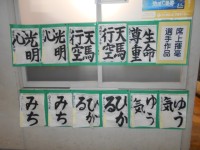 席上揮毫
選手作品
生命
尊重
天馬
行空
天馬
行空
光明
心
光明
心
ゆう
気
ゆう
気
ひかる
ひかる
みち
みち